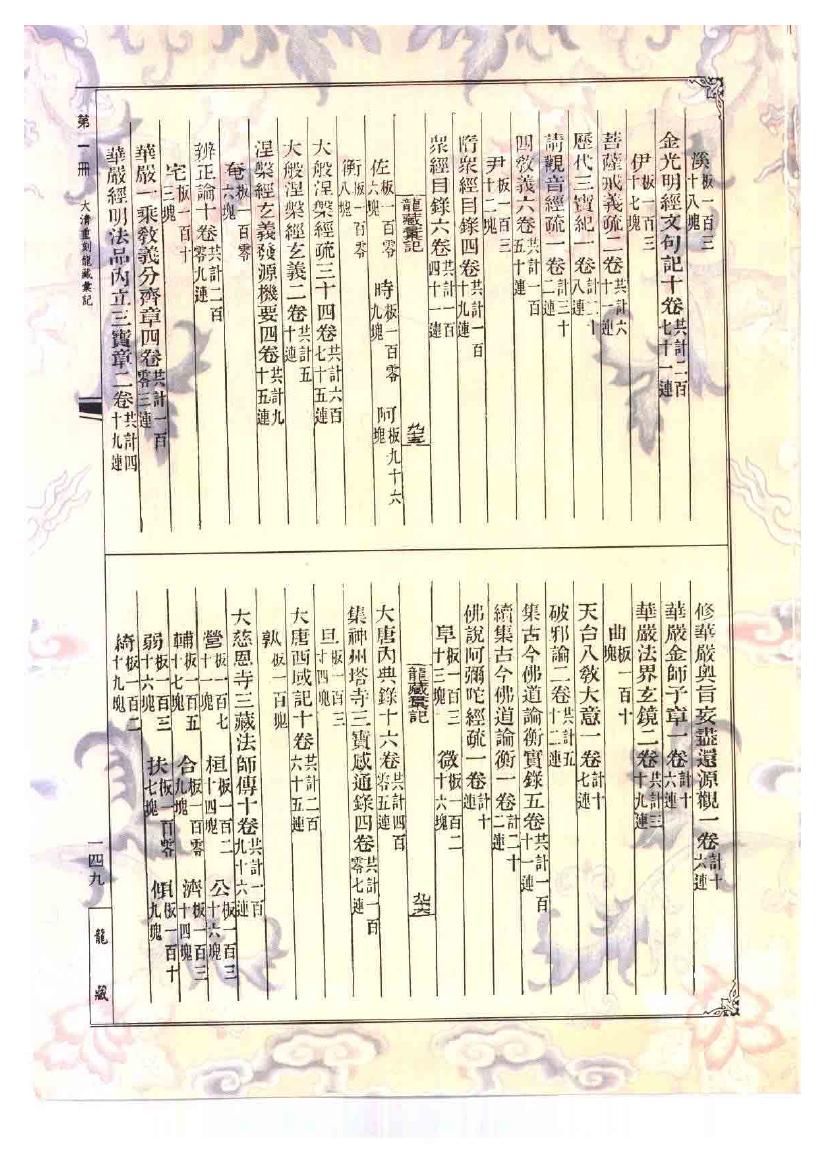 溪板一百三十八塊
金光明經文句記十卷共計二百七十一連
伊板一百三十七塊
菩薩戒義疏二卷共計六十一連
歷代三寶紀一卷計二十八連
請觀音經疏一卷計三十二連
四教義六卷共計一百五十連
尹板一百三十二塊
隋衆經目錄四卷共計一百十九連
衆經目錄六卷共計一百四十一連
龍藏彙記
佐板一百零六塊 時板一百零九塊 阿板九十六塊
衡板一百零八塊
大般涅槃經疏三十四卷共計六百七十五連
大般涅槃經玄義二卷共計五十連
涅槃經玄義發源機要四卷共計九十五連
奄板一百零六塊
辨正論十卷共計二百零九連
宅板一百十三塊
華嚴一乘教義分齊章四卷共計一百零三連
華嚴經明法品內立三寶章二卷共計四十九連
第一冊 大清重刻龍藏彙記
修華嚴奧旨妄盡還源觀一卷計十六連
華嚴金師子章一卷計十六連
華嚴法界玄鏡二卷共計三十九連
曲板一百十塊
天台八教大意一卷計十七連
破邪論二卷共計五十二連
集古今佛道論衡實錄五卷共計一百十一連
續集古今佛道論衡一卷計二十二連
佛說阿彌陀經疏一卷計十連
阜板一百三十三塊 微板一百二十六塊
龍藏彙記
大唐內典錄十六卷共計四百零五連
集神州塔寺三寶感通錄四卷共計一百零七連
旦板一百三十四塊
大唐西域記十卷共計二百六十五連
孰板一百塊
大慈恩寺三藏法師傳十卷共計一百九十六連
營板一百七十一塊 桓板一百二十四塊 公板一百三十六塊
輔板一百五十七塊 合板一百零九塊 濟板一百三十四塊
弱板一百三十六塊 扶板一百零七塊 傾板一百十九塊
綺板一百二十九塊
一四九
龍藏